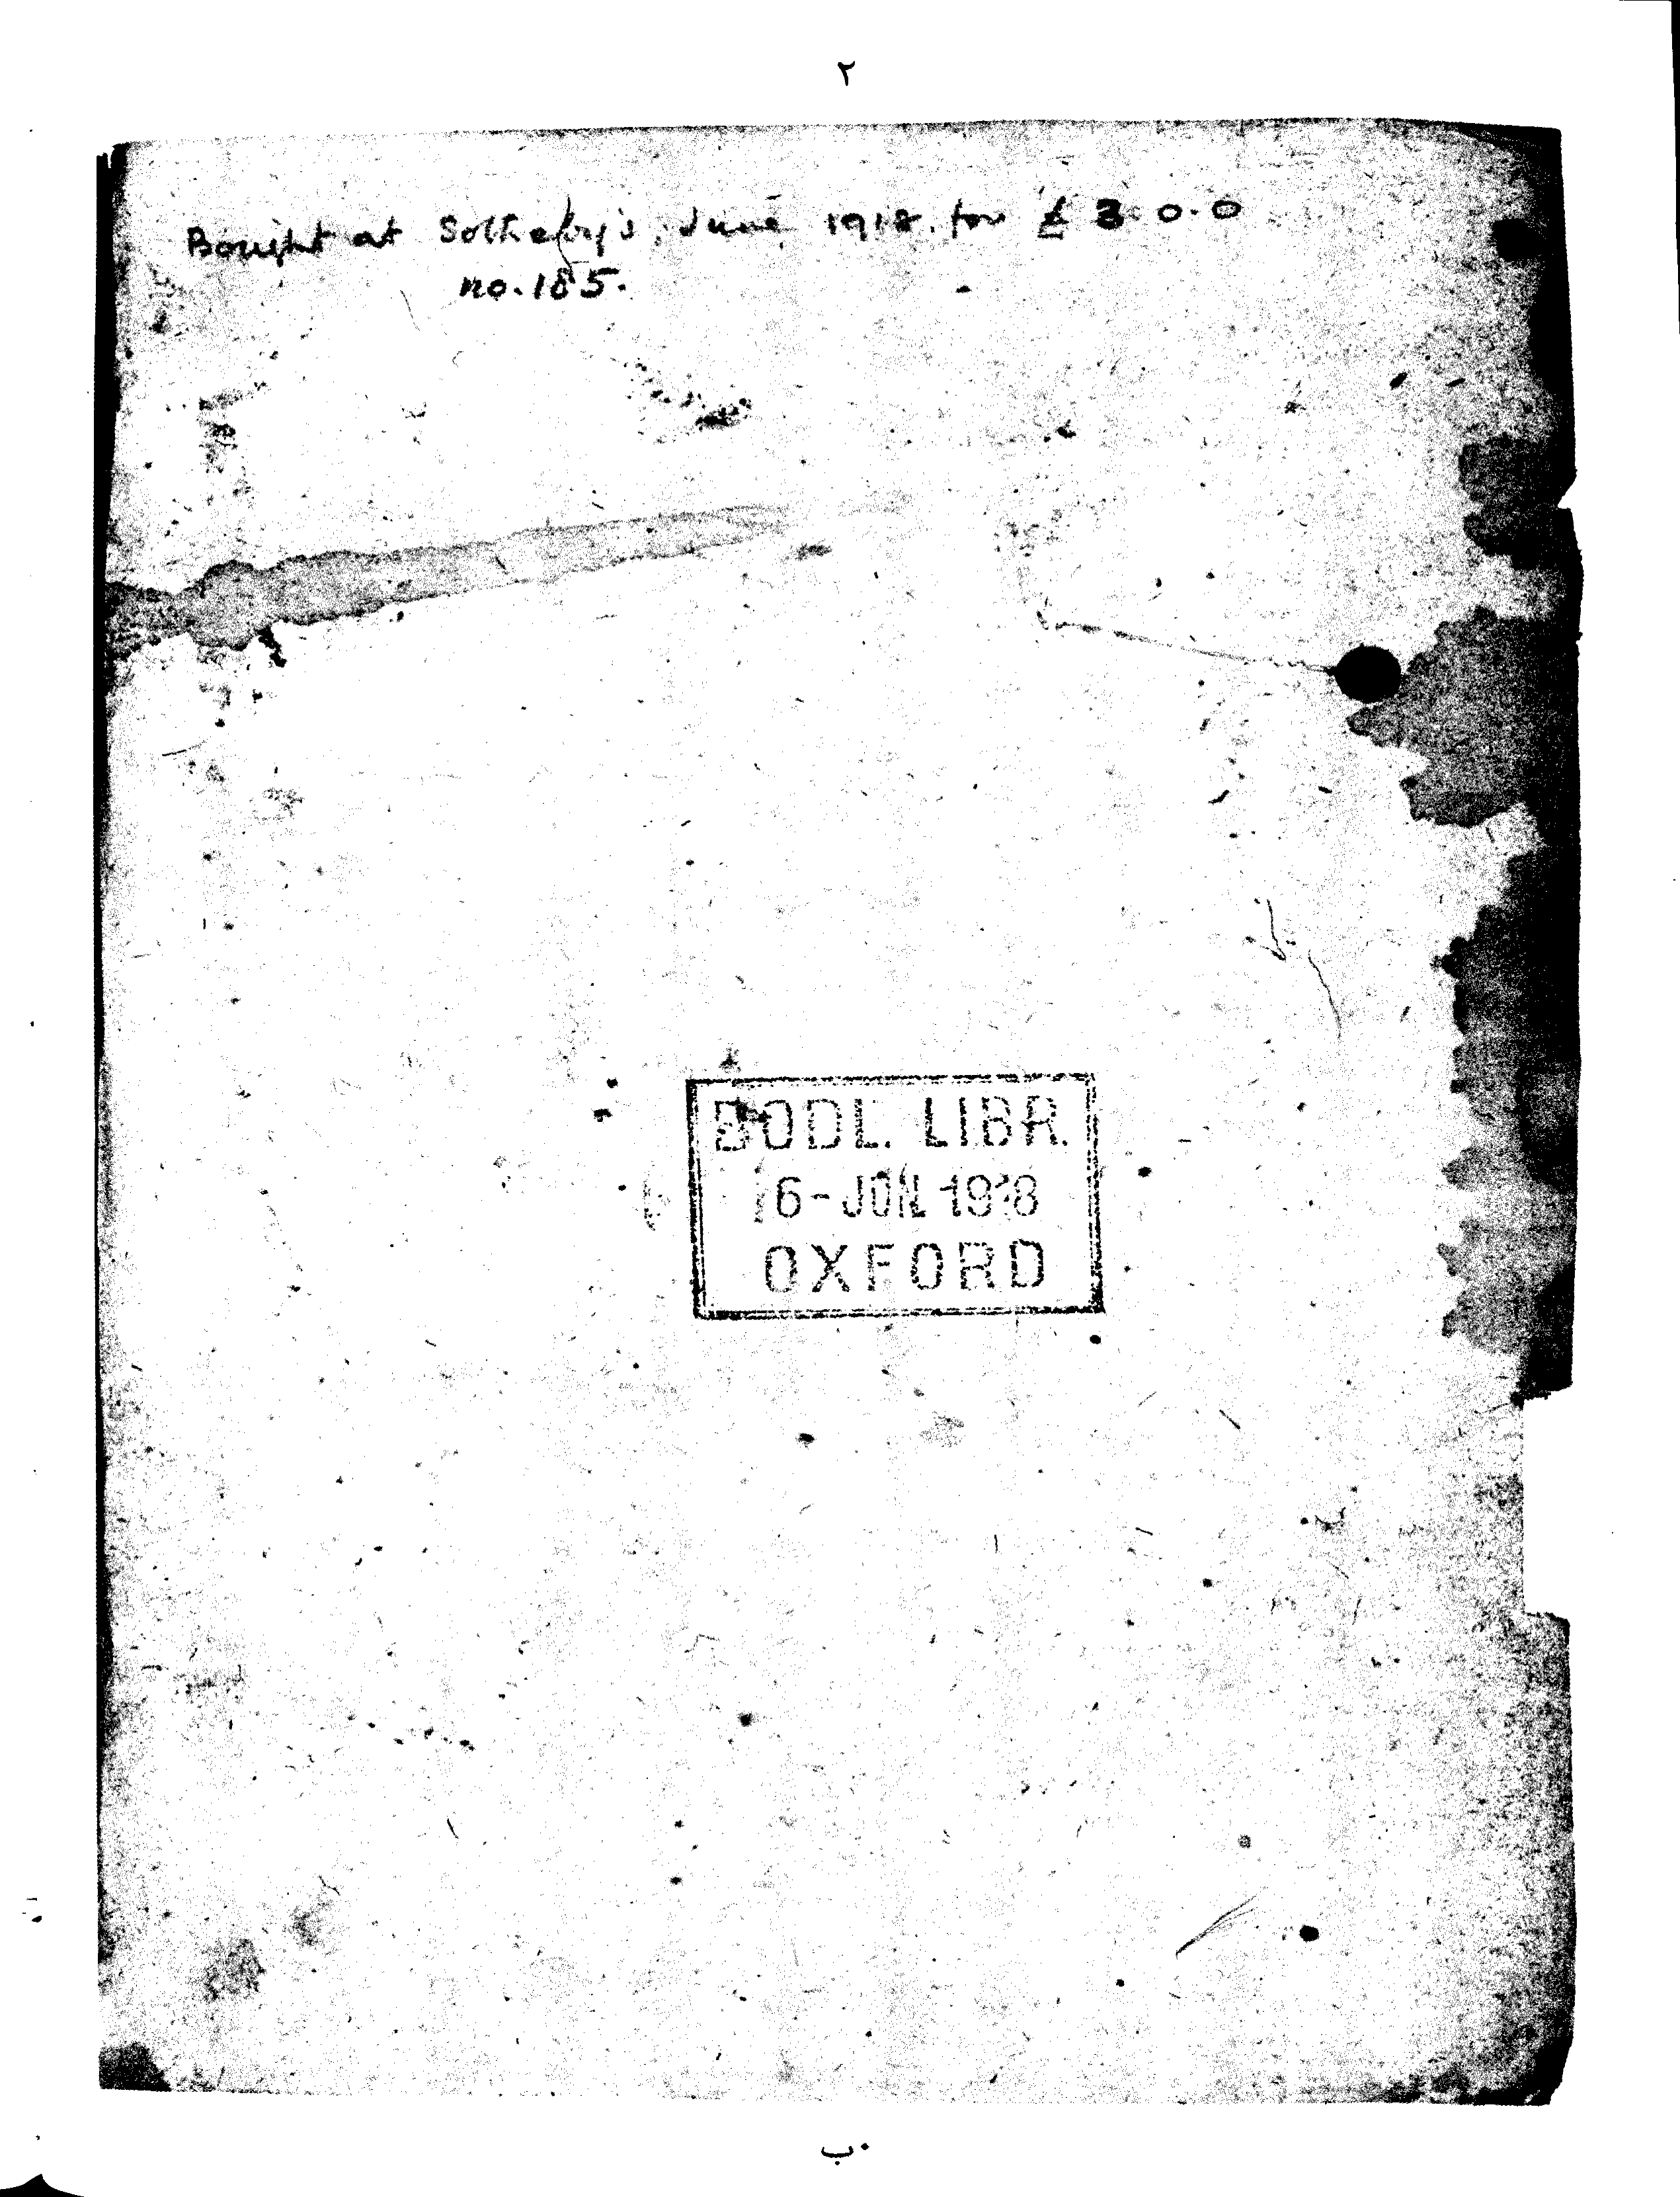 ٢
Bought at Sotheby's, June 1918. for £ 3.0.0
no. 185.
BODL. LIBR.
6-JUN 1918
OXFORD
٠ب